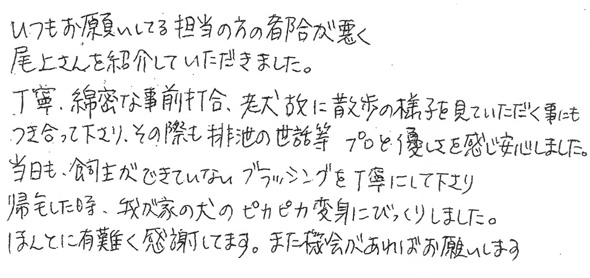 いつもお願いしてる担当の方の都合が悪く
尾上さんを紹介していただきました。
丁寧、綿密な事前打合、老犬故に散歩の様子を見ていただく事にも
つき合って下さり、その際も排泄の世話等 プロと優しさを感じ安心しました。
当日も、飼主ができていないブラッシングを丁寧にして下さり
帰宅した時、我が家の犬のピカピカ変身にびっくりしました。
ほんとに有難く感謝してます。また機会があればお願いします